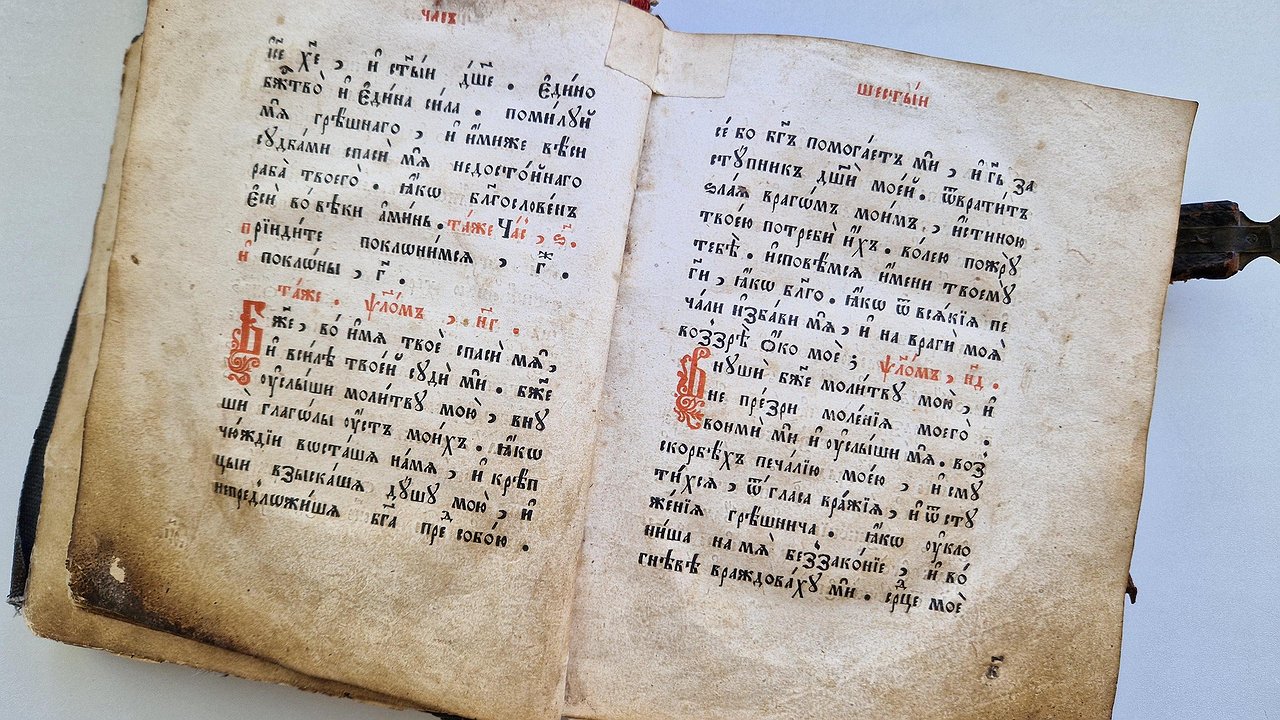 часъ
і҆с҃е хр҃е , и҆ ст҃ы́и дш҃е . Є҆ди́но
бж҃тво̀ и҆ Є҆ди́на си́ла . поми́лꙋй
мѧ̀ грѣ́шнаго , и҆ и҆́миже вѣ́си
сꙋдба́ми спаси́ мѧ̀ недосто́йнаго
раба̀ твоего̀ . ꙗ҆́кѡ блгⷭ҇ове́нъ
Є҆сѝ во́ вѣки а҆ми́нь . та́же Ча́с , ѕ҃ .
прїиди́те поклѡни́мсѧ , г҃ж .
и҆ поклѡ́ны , г҃ .
та́же . ѱл҃о́мъ , н҃г .
Бж҃е , во́ и҆мѧ твоѐ спасѝ мѧ̀ ,
и҆ в си́лѣ твое́й сꙋдѝ мѝ . бж҃е
ᲂу҆слы́ши моли́твꙋ мою̀ , внꙋ
шѝ глаго́лы ᲂу҆́стъ мои́хъ . ꙗ҆́кѡ
чю́ждїи воста́шѧ на́мѧ , и҆ крѣ́п
цыи взыска́шѧ дꙋ́шꙋ мою̀ , и҆
непредложи́шѧ бг҃а преⷣ собо́ю .
шесты́и
се́ бо бг҃ъ помога́етъ мѝ , и҆ гⷭ҇ь за
стꙋ́пникъ дш҃ѝ мое́й . ѿврати́тъ
ѕла́ѧ врагѡ́мъ мои́мъ , и҆́стиною
твое́ю потребѝ и҆́хъ . во́лею пожрꙋ̀
тебѣ̀ . и҆сповѣ́мсѧ и҆́мени твоемꙋ̀
гⷭ҇и , ꙗ҆́кѡ бл҃го . ꙗ҆́кѡ ѿ всѧ́кїѧ пе
ча́ли и҆зба́ви мѧ̀ , и҆ на врагѝ моѧ̀
воззрѣ̀ ѻ҆́ко моѐ ; ѱл҃о́мъ , н҃д .
Внꙋшѝ бж҃е моли́твꙋ мою̀ , и҆
не пре́зри моле́нїѧ моегѡ̀ .
вонмѝ мѝ и҆ ᲂу҆слы́ши мѧ̀ . воз
скорбѣ́хъ печа́лїю мое́ю , и҆ смꙋ
ти́хсѧ , ѿ гла́са вра́жїѧ , и҆ ѿ стꙋ
же́нїѧ грѣ́шнича . ꙗ҆́кѡ ᲂу҆кло
ни́ша на мѧ̀ беззако́нїе , и҆ во́
гнѣ́вѣ враждова́хꙋ мѝ . срⷣце моѐ